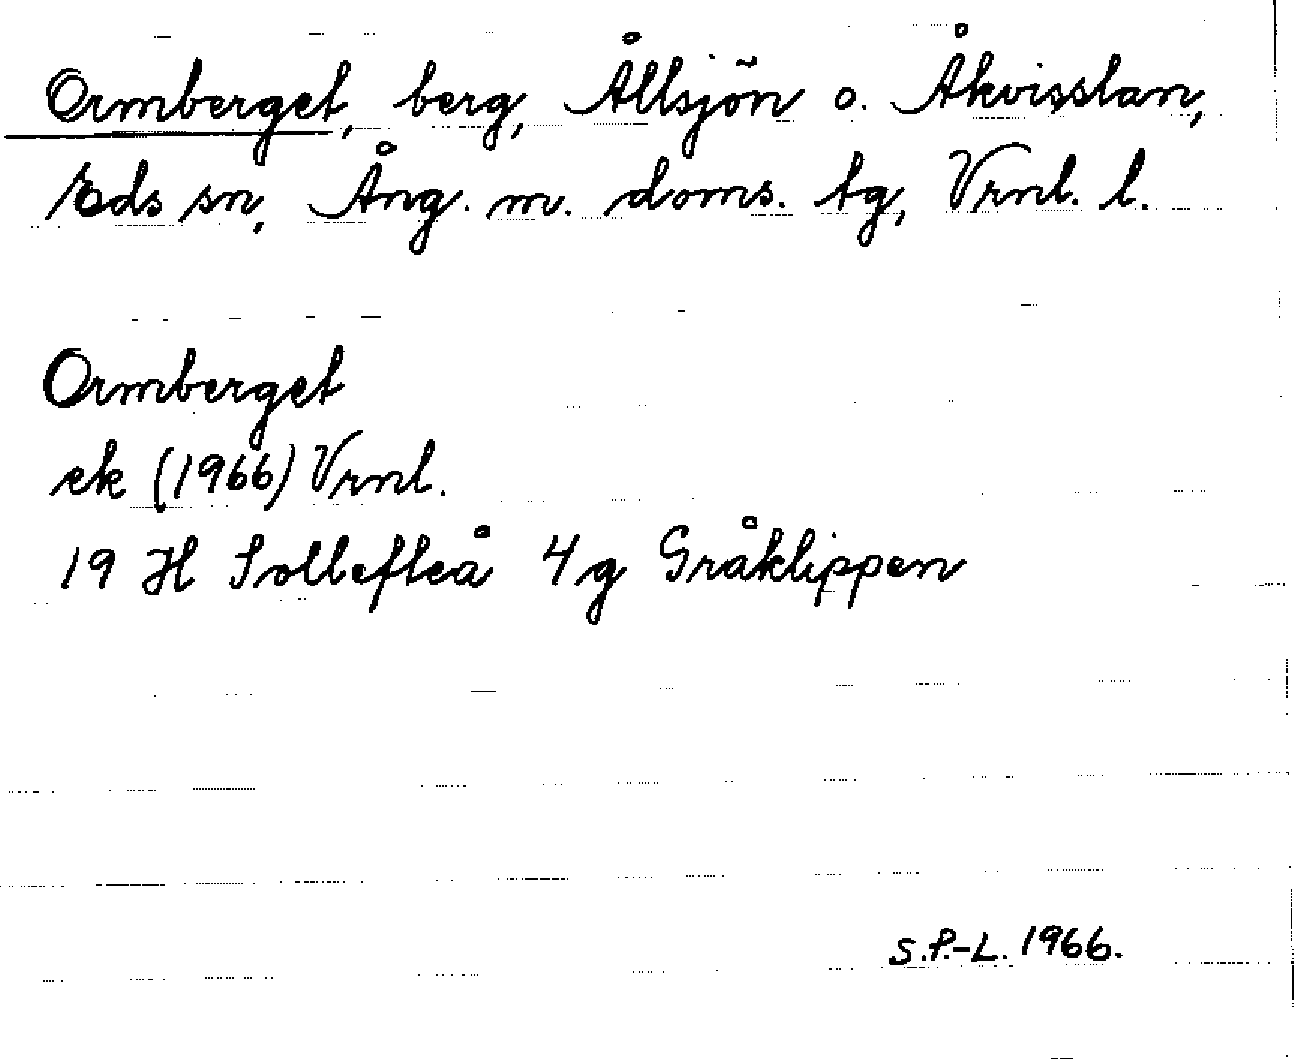 Ormberget, berg, Ållsjön o. Åkvisslan,
Eds sn, Ång. m. doms. tg, Vrnl. l.
Ormberget
ek (1966) Vrnl.
19 H Sollefteå 4g Gråklippen
S.P.-L. 1966.